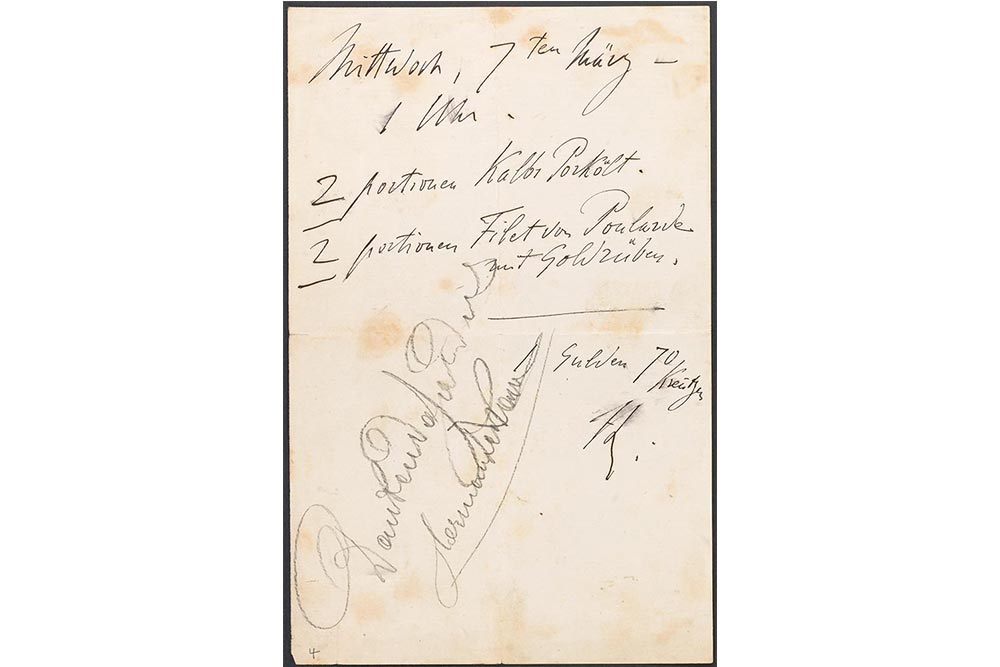 Mittwoch, 7ten März –
1 Uhr.
2 portionen Kalbs Porkölt.
2 portionen Filet von Poularde
mit Goldrüben.
1 Gulden 70
Kreutzer
Dankend
4